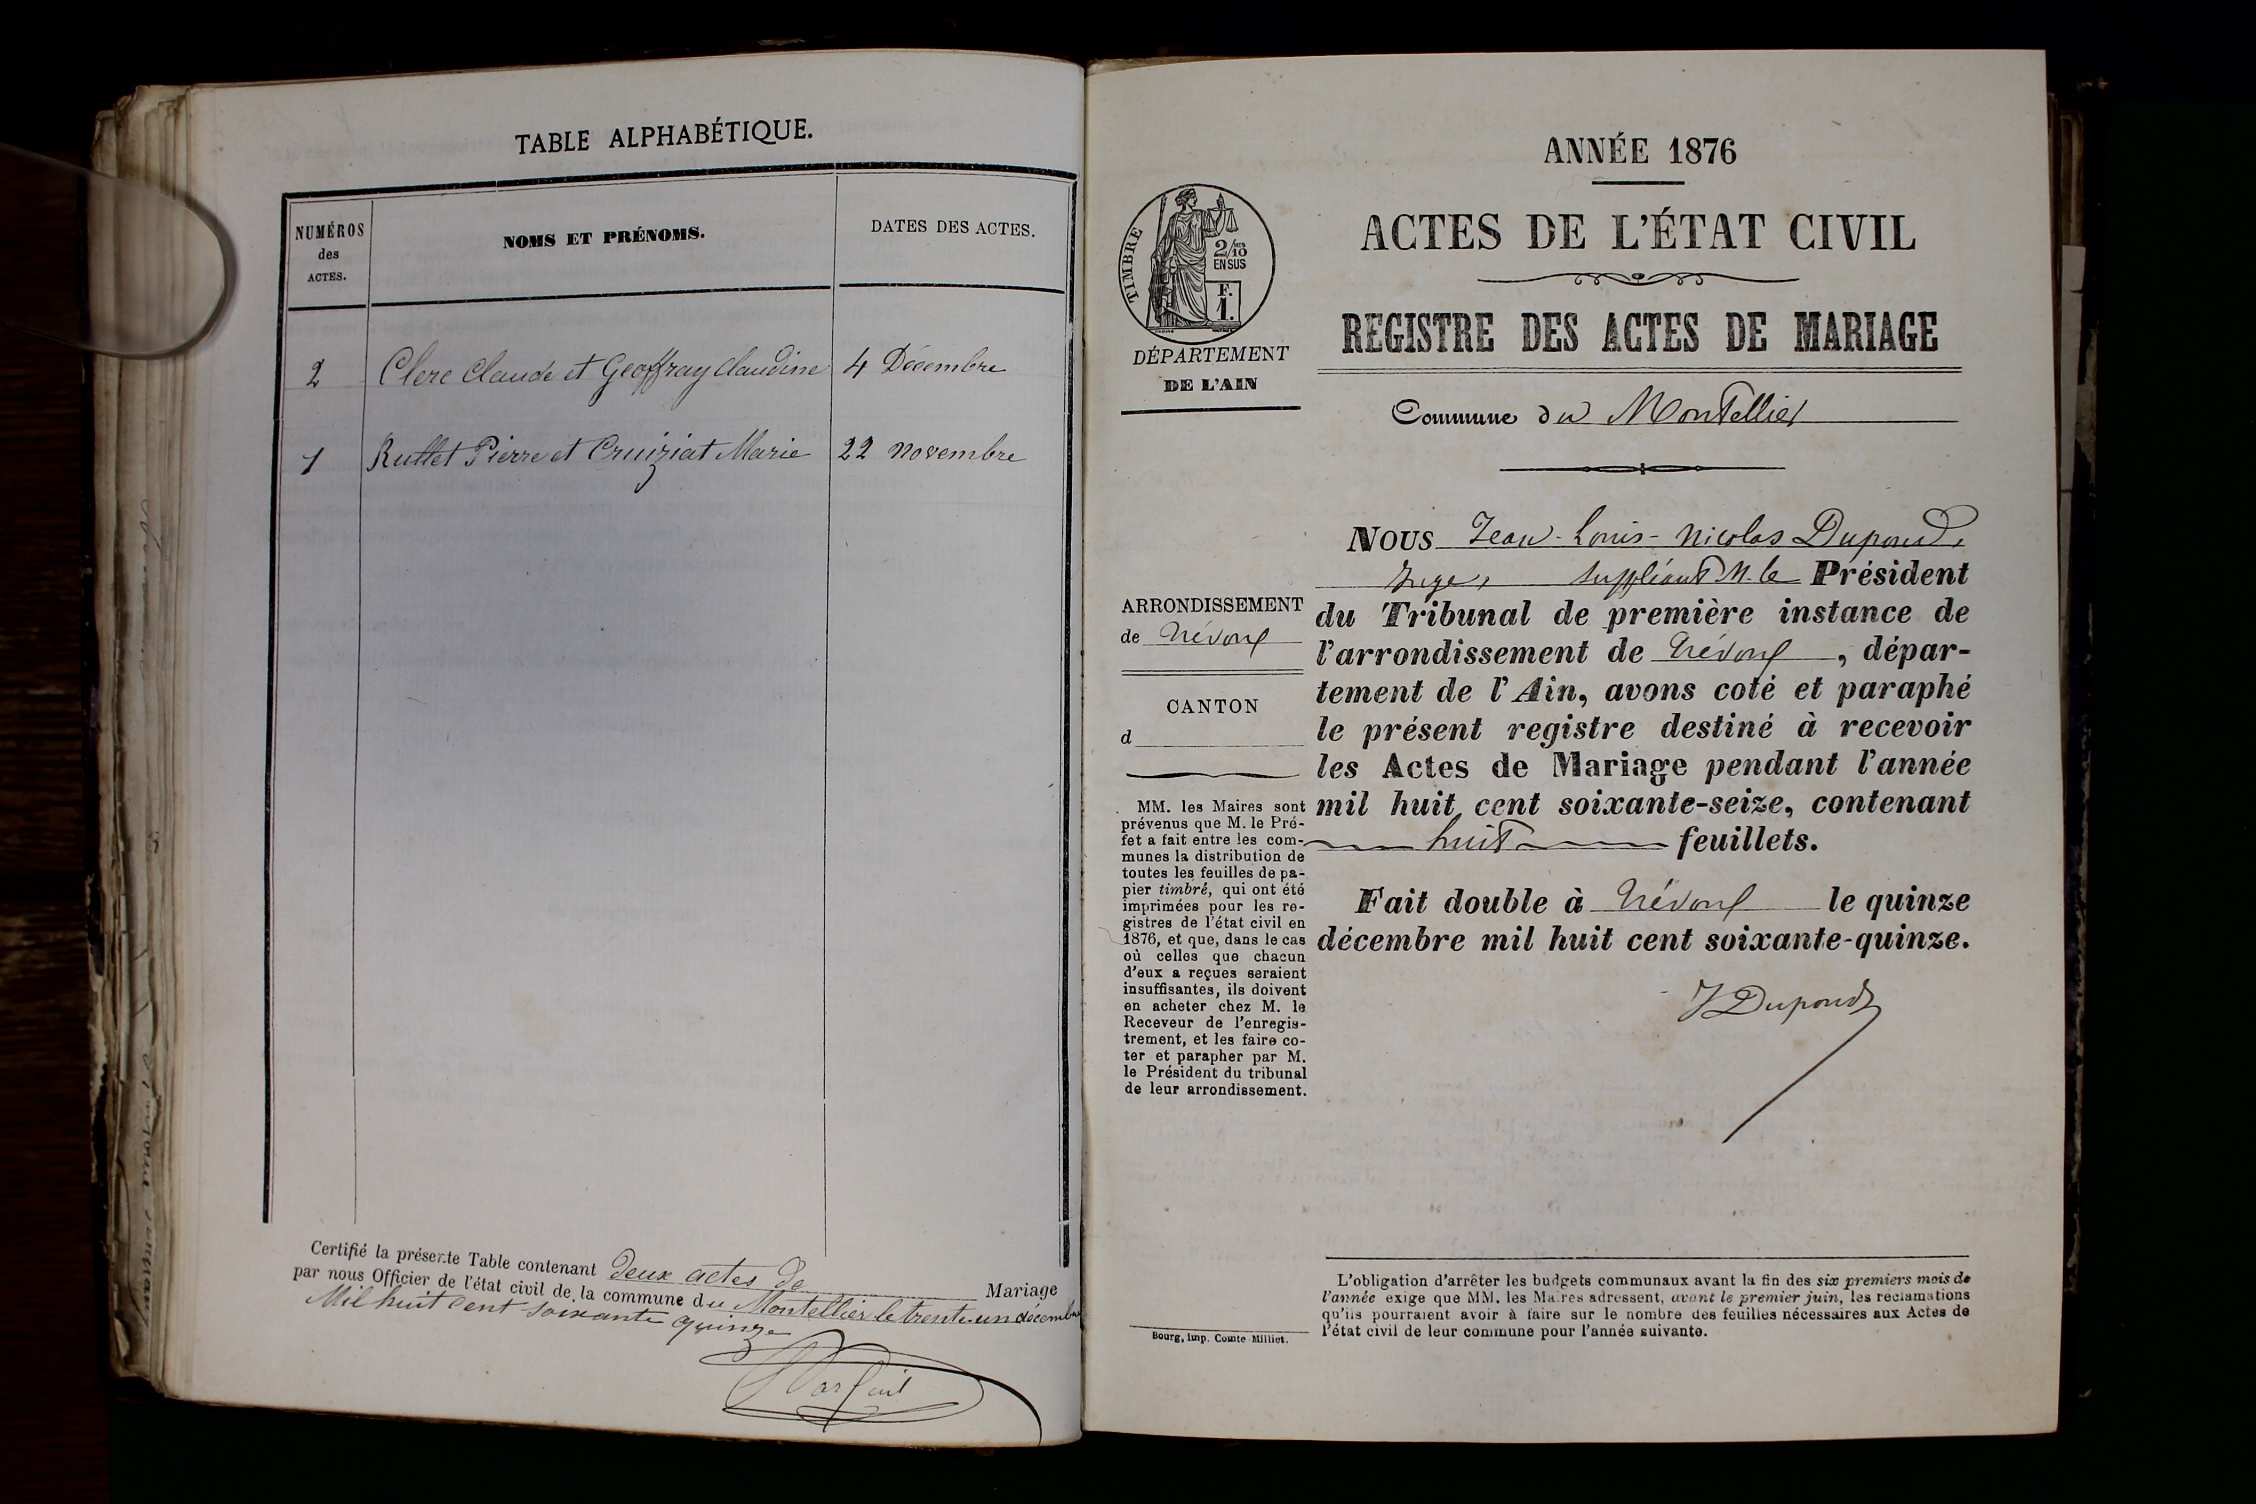 TABLE ALPHABÉTIQUE.
NUMÉROS
des
ACTES.
NOMS ET PRÉNOMS.
DATES DES ACTES.
2 Clerc Claude et Geoffray Claudine 4 Décembre
1 Ruttet Pierre et Cruiziat Marie 22 novembre
Certifié la présente Table contenant deux actes de Mariage
par nous Officier de l'état civil de la commune du Montellier le trente-un décembre
Mil huit cent soixante quinze
ANNÉE 1876
ACTES DE L'ÉTAT CIVIL
REGISTRE DES ACTES DE MARIAGE
TIMBRE
2/10
EN SUS
F.
1.
DÉPARTEMENT
DE L'AIN
Commune du Montellier
ARRONDISSEMENT
de Trévoux
CANTON
d
MM. les Maires sont
prévenus que M. le Pré-
fet a fait entre les com-
munes la distribution de
toutes les feuilles de pa-
pier timbré, qui ont été
imprimées pour les re-
gistres de l'état civil en
1876, et que, dans le cas
où celles que chacun
d'eux a reçues seraient
insuffisantes, ils doivent
en acheter chez M. le
Receveur de l'enregis-
trement, et les faire co-
ter et parapher par M.
le Président du tribunal
de leur arrondissement.
NOUS Jean-Louis-Nicolas Dupond,
Juge, suppléant M. le Président
du Tribunal de première instance de
l'arrondissement de Trévoux, dépar-
tement de l'Ain, avons coté et paraphé
le présent registre destiné à recevoir
les Actes de Mariage pendant l'année
mil huit cent soixante-seize, contenant
huit feuillets.
Fait double à Trévoux le quinze
décembre mil huit cent soixante-quinze.
J Dupond
L'obligation d'arrêter les budgets communaux avant la fin des six premiers mois de
l'année exige que MM. les Maires adressent, avant le premier juin, les réclamations
qu'ils pourraient avoir à faire sur le nombre des feuilles nécessaires aux Actes de
l'état civil de leur commune pour l'année suivante.
Bourg, imp. Comte Milliet.